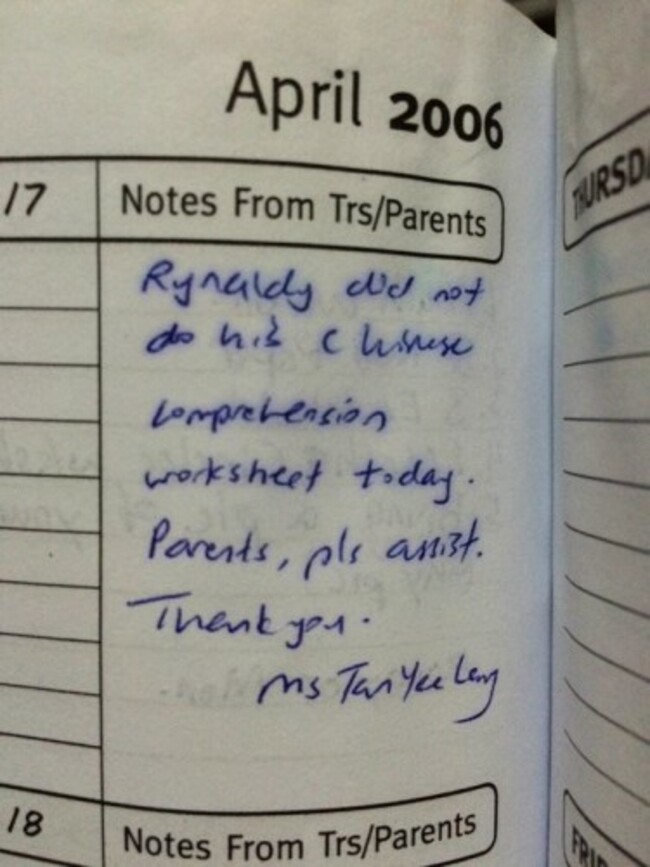 April 2006
17 Notes From Trs/Parents THURSDA
Rynaldy did not
do his Chinese
comprehension
worksheet today.
Parents, pls assist.
Thank you.
Ms Tan Yee Leng
18 Notes From Trs/Parents FRI